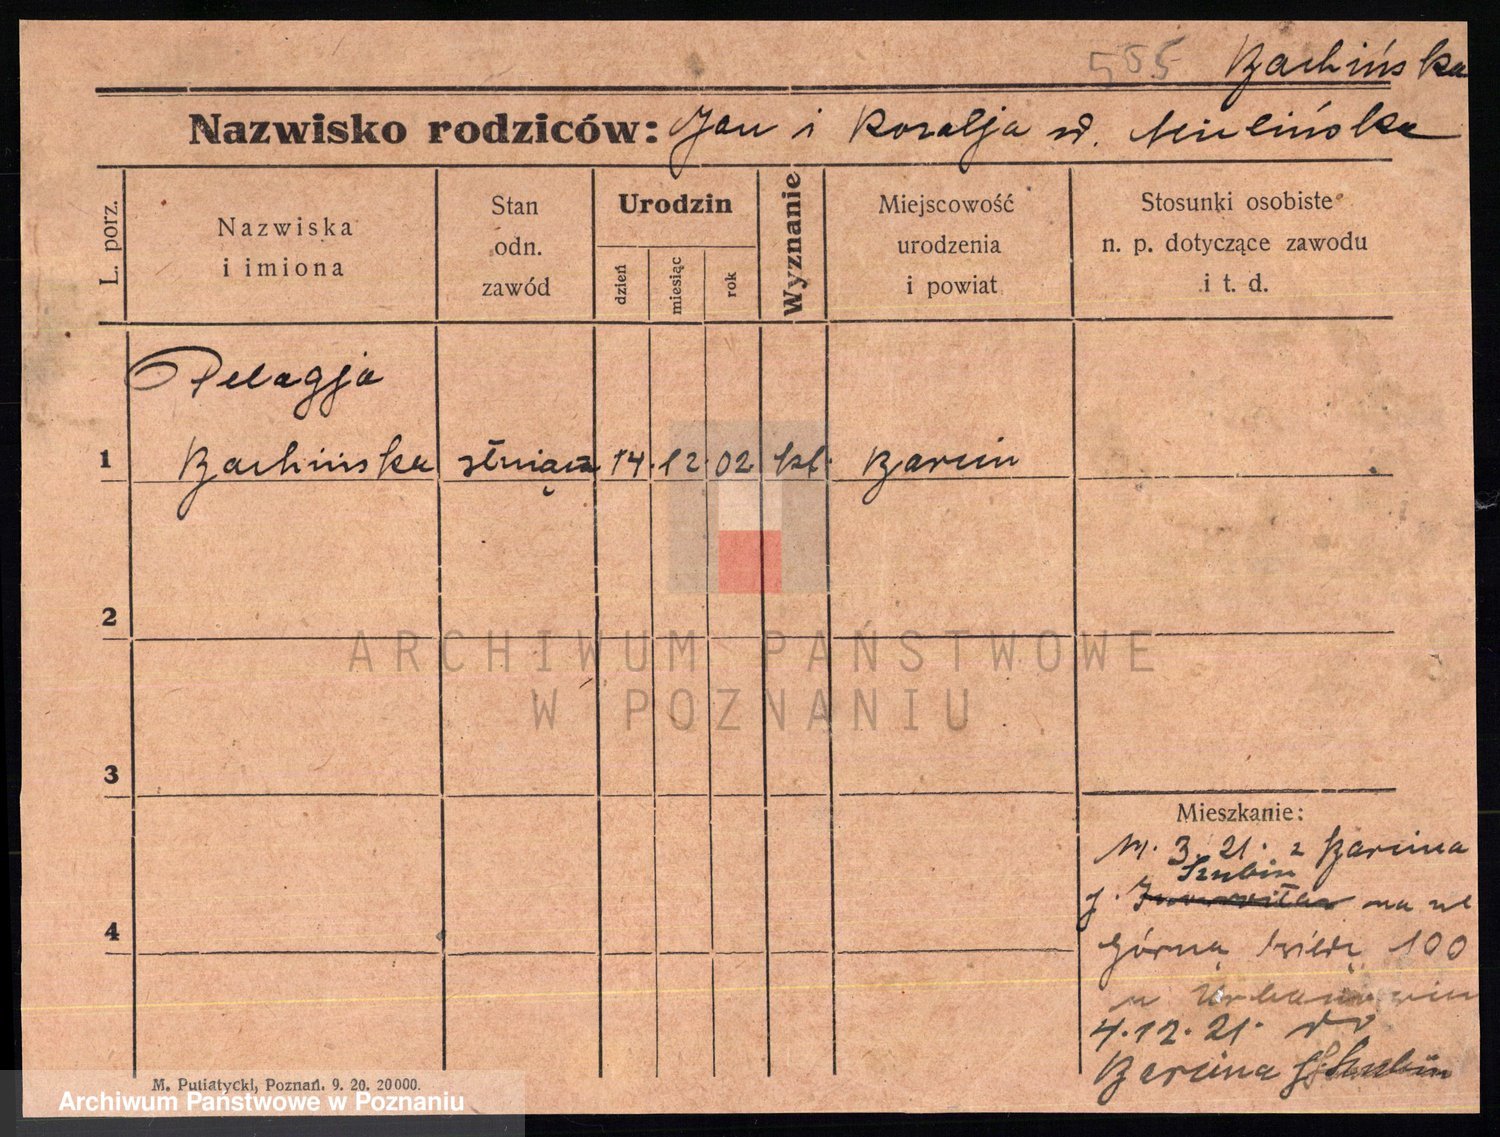 555 Bachińska
Nazwisko rodziców: Jan i Rozalja
L. porz.
Nazwiska
i imiona
Stan
odn.
zawód
Urodzin
dzień
miesiąc
rok
Wyznanie
Miejscowość
urodzenia
i powiat
Stosunki osobiste
n. p. dotyczące zawodu
i t. d.
Pelagja
1 Bachińska służąca 14. 12. 02 kt. Barcin
2
ARCHIWUM PAŃSTWOWE
W POZNANIU
3
4
Mieszkanie:
3. 21. z Barcina
Szubin
na ul
Górną Wildę 100
u
4. 12. 21. do
Barcina Szubin
M. Putiatycki, Poznań. 9. 20. 20000.
Archiwum Państwowe w Poznaniu